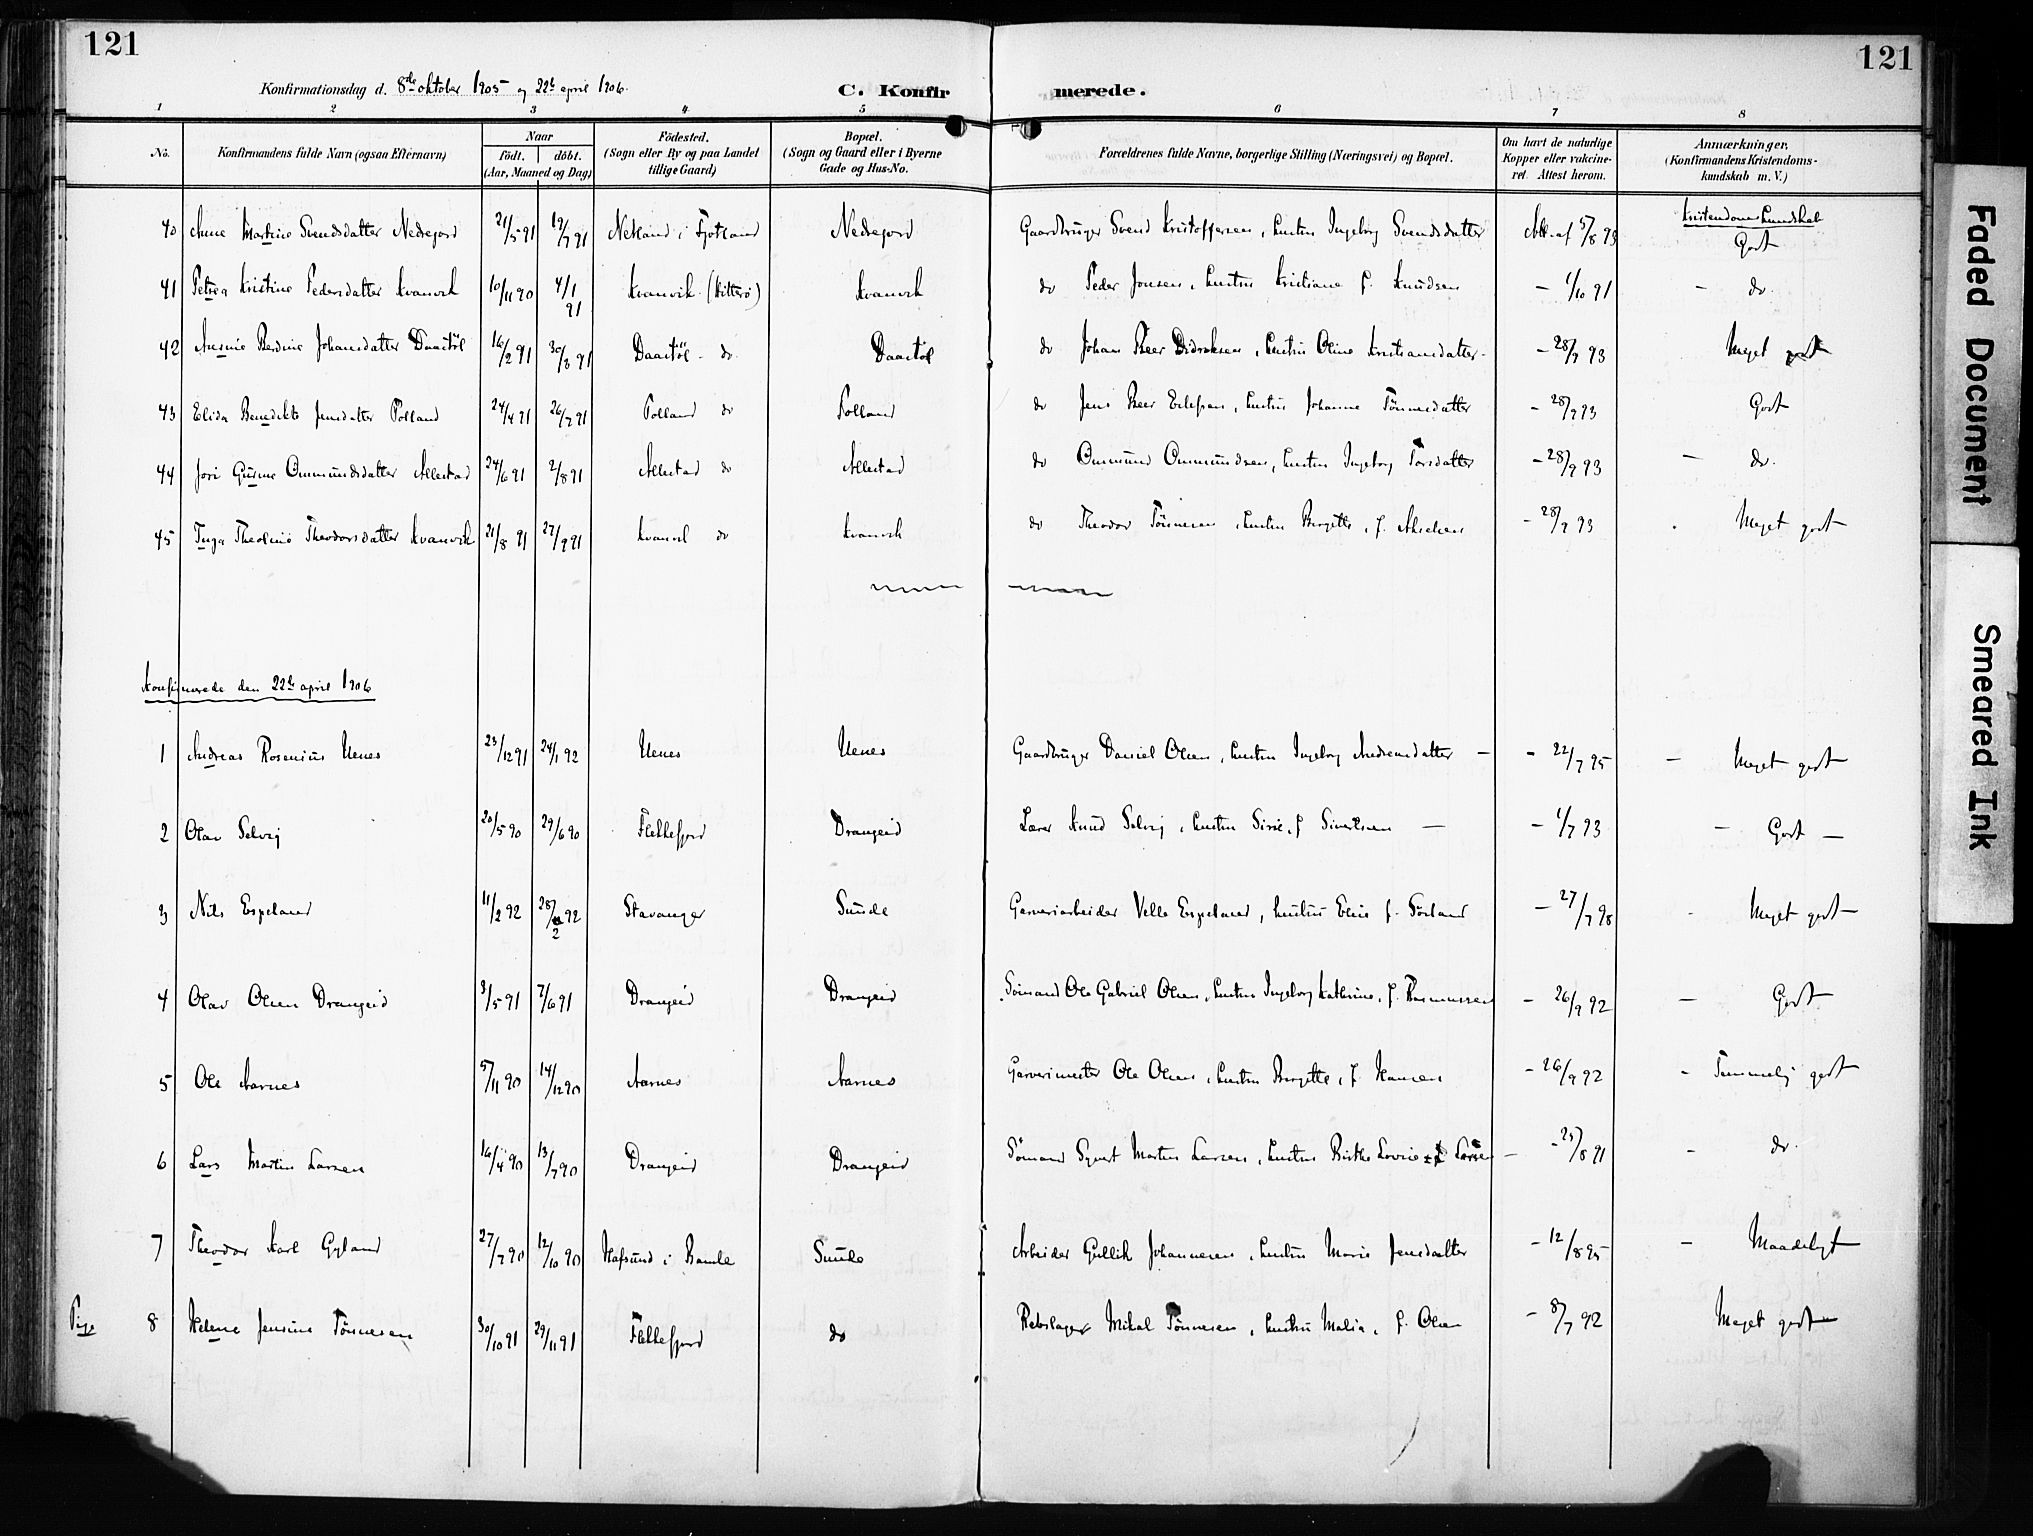 121
121
Konfirmationsdag d. 8de oktober 1905 og 22de april 1906.
C. Konfirmerede.
1 2 3 4 5 6 7 8
No. Konfirmandens fulde Navn (ogsaa Efternavn) Naar født. døbt. (Aar, Maaned og Dag) Fødested. (Sogn eller By og paa Landet tillige Gaard) Bopæl. (Sogn og Gaard eller i Byerne Gade og Hus-No. Forældrenes fulde Navne, borgerlige Stilling (Næringsvei) og Bopæl. Om havt de naturlige Kopper eller vakcineret. Attest herom. Anmærkninger. (Konfirmandens Kristendomskundskab m. V.)
Kristendomskundskab
40 Anne Martine Svendsdatter Nedrejord 21/5 91 19/7 91 Netland i Fjotland Nedrejord Gaardbruger Svend Kristoffersen, hustru Ingeborg Svendsdatter Att. af 5/8 93 Godt
41 Petrea Kristine Pedersdatter Kvanvik 10/11 90 4/1 91 Kvanvik (Hitterø) Kvanvik do Peder Jonsen, hustru Kristiane f. Knudsen - 1/10 91 - do.
42 Berdine Johansdatter Daatøl 16/2 91 30/3 91 Daatøl - do. Daatøl do Johan Peer Didriksen, hustru Oline Kristiansdatter - - 28/9 93 Meget godt
43 Elida Benedikte Jensdatter Polland 24/4 91 26/7 91 Polland do Polland do Jens Peer Eilefsen, hustru Johanne Tønnesdatter - 28/9 93 Godt
44 Jori Gurine Ommundsdatter Allestad 24/6 91 2/8 91 Allestad do Allestad do Ommund Ommundsen, hustru Ingeborg Torsdatter - 28/9 93 - do.
45 Inga Theoline Theodorsdatter Kvanvik 21/8 91 27/9 91 Kvanvik do Kvanvik do Theodor Tønnesen, hustru Bergitte, f. - 28/9 93 Meget godt
Konfirmerede den 22de april 1906
1 Andreas Rosenius Uenes 23/12 91 24/1 92 Uenes Uenes Gaardbruger Daniel Olsen, hustru Ingeborg Andreasdatter - - 22/7 95 - Meget godt
2 Olav Selvig 20/5 90 29/6 90 Flekkefjord Drangeid Lærer Knud Selvig, hustru Sirie, f Sivertsen - - 1/7 93 - Godt -
3 Nils Espeland 11/2 92 28/2 92 Stavanger Sunde Garveriarbeider Velle Espeland, hustru Elen f. Sørland - 27/7 98 - Meget godt
4 Olav Olsen Drangeid 3/5 91 7/6 91 Drangeid Drangeid Sømand Ole Gabriel Olsen, hustru Ingeborg Kathrine, f. Rasmussen - 26/9 92 - Godt
5 Ole Aarnes 5/11 90 14/12 90 Aarnes Aarnes Garverimester Ole Olsen, hustru Bergitte, f. Hansen - 26/9 92 - Temmelig godt
6 Lars Martin Larsen 16/4 90 13/7 90 Drangeid Drangeid Sømand Syvert Martin Larsen, hustru Birthe Lovise f - 25/8 91 - do.
7 Theodor Karl Gyland 27/7 90 12/10 90 Hafsund i Bamle Sunde Arbeider Gullik Johannesen, hustru Marie Jensdatter - 12/8 95 - Maadeligt
Pige 8 Helene Jensine Tønnesen 30/10 91 29/11 91 Flekkefjord do Rebslager Mikal Tønnesen, hustru Malia, f. Olsen - 8/7 92 Meget godt
Faded Document
Smeared Ink